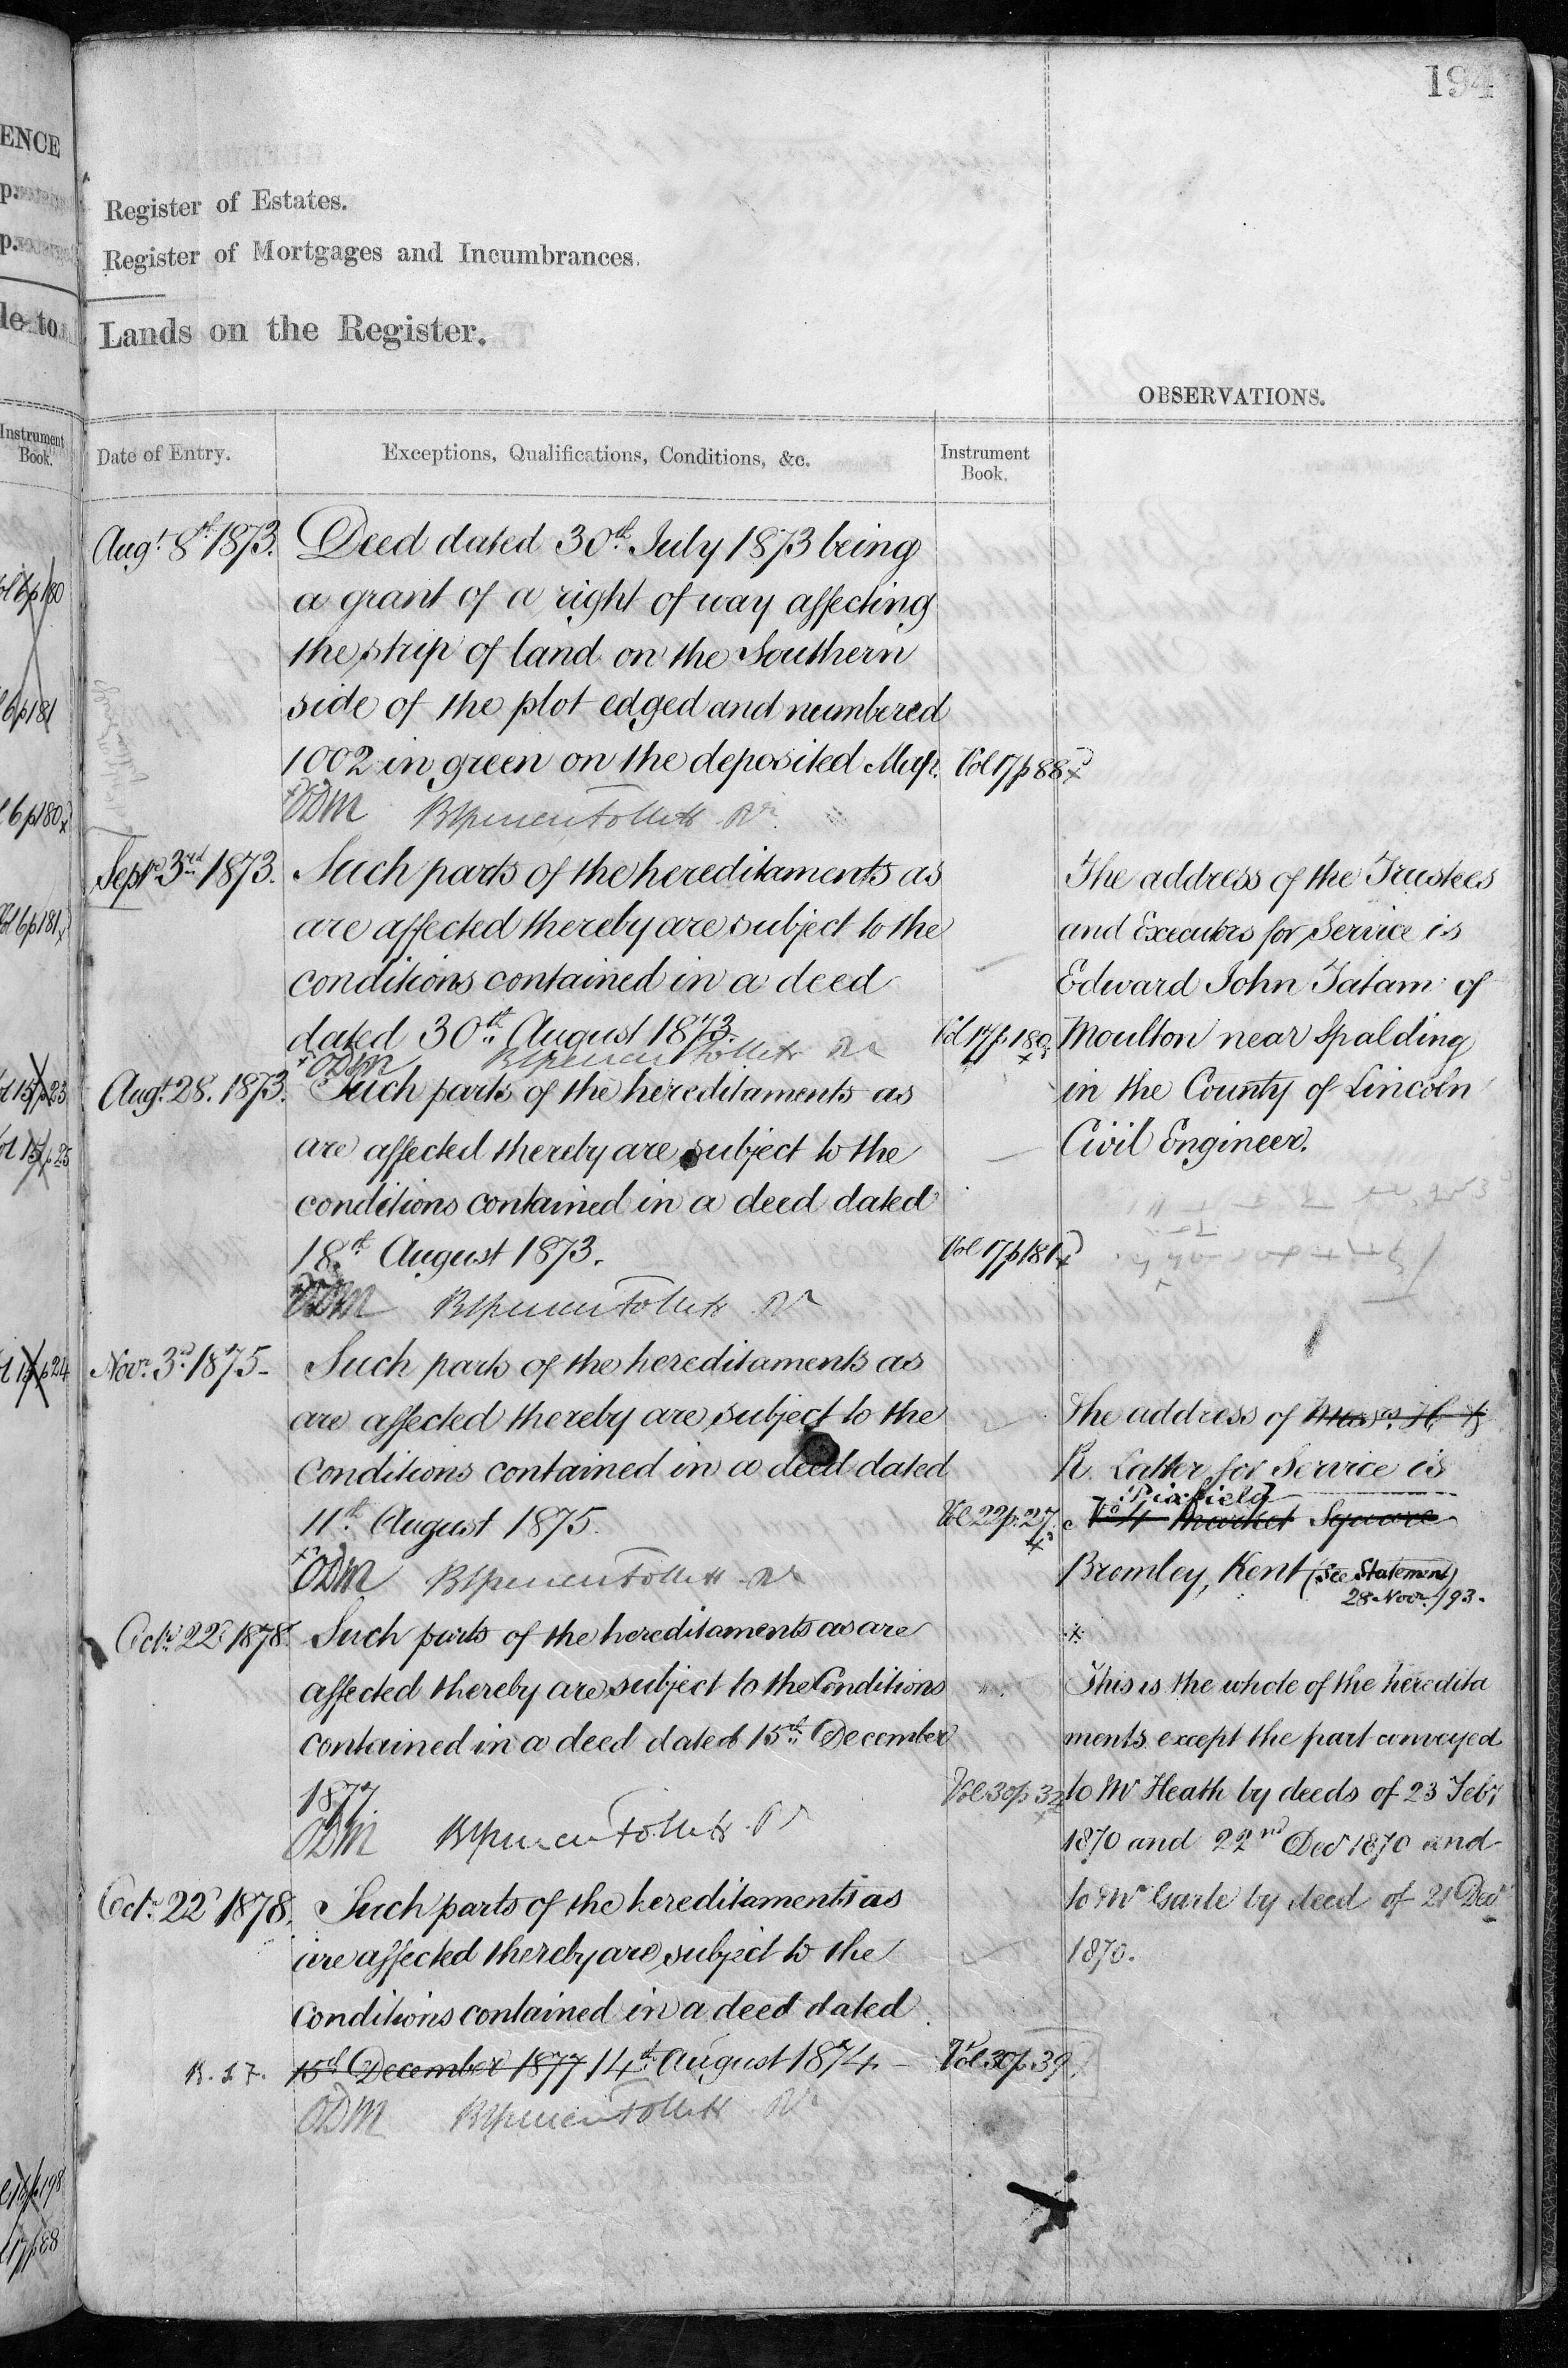 194
ENCE
p.
p.
le to
Instrument
Book.
Register of Estates.
Register of Mortgages and Incumbrances.
Lands on the Register.
OBSERVATIONS.
Date of Entry.
Exceptions, Qualifications, Conditions, &c.
Instrument
Book.
Augt. 8th 1873.
Deed dated 30th July 1873 being
a grant of a right of way affecting
the strip of land on the Southern
side of the plot edged and numbered
1002 in green on the deposited Map.
Vol 17 p 88
ODM
Septr. 3rd 1873.
Such parts of the hereditaments as
are affected thereby are subject to the
conditions contained in a deed
dated 30th August 1873.
Vol 17 p 180
ODM
Augt. 28. 1873.
Such parts of the hereditaments as
are affected thereby are subject to the
conditions contained in a deed dated
18th August 1873.
Vol 17 p 181
ODM
Novr. 3rd 1875-
Such parts of the hereditaments as
are affected thereby are subject to the
Conditions contained in a deed dated
11th August 1875.
Vol 22 p. 27
ODM
Octr. 22d 1878
Such parts of the hereditaments as are
affected thereby are subject to the Conditions
contained in a deed dated 15th December
1877
Vol 30 p 32
ODM
Octr. 22d 1878.
Such parts of the hereditaments as
are affected thereby are subject to the
Conditions contained in a deed dated
15th December 1877 14th August 1874.
Vol 30 p. 39
ODM
The address of the Trustees
and Executors for Service is
Edward John Tatam of
Moulton near Spalding
in the County of Lincoln
Civil Engineer.
The address of Messrs. H. &
R. Latter for Service is
Pixfield
No 4 Market Square
Bromley, Kent (See Statement)
28 Novr. /93.
This is the whole of the heredita
ments except the part conveyed
to Mr Heath by deeds of 23 Feby
1870 and 22nd Decr 1870 and
to Mr Garle by deed of 21 Decr
1870.